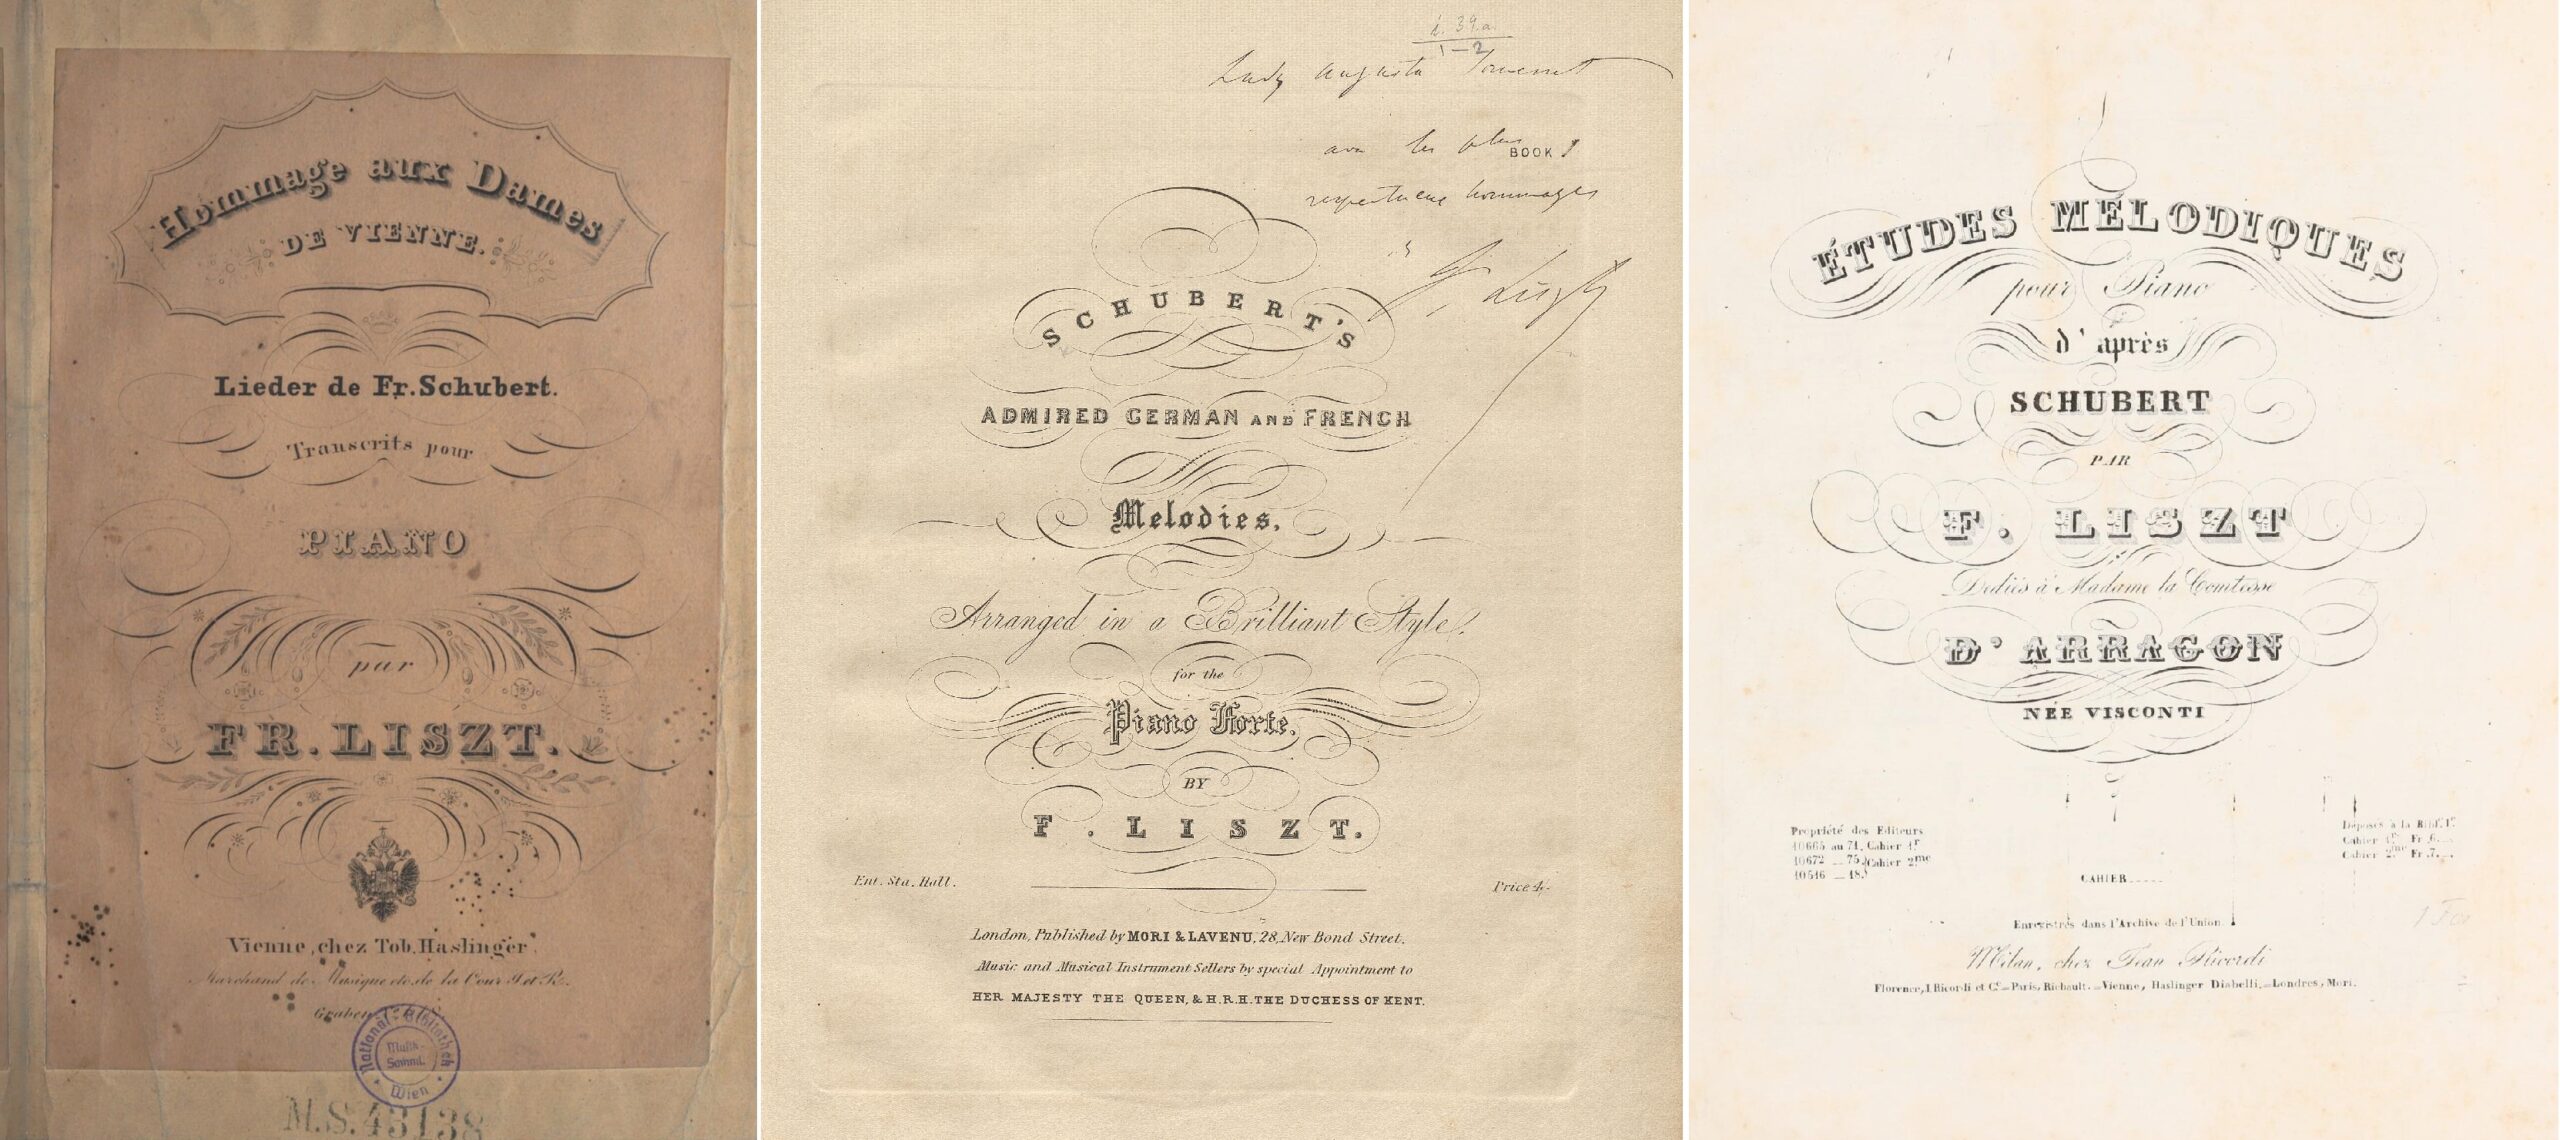 Hommage aux Dames
DE VIENNE.
Lieder de Fr. Schubert.
Transcrits pour
PIANO
par
FR. LISZT.
Vienne, chez Tob. Haslinger
Marchand de Musique etc. de la Cour I. et R.
Graben
National-Bibliothek
Musik-
Samml.
Wien
M.S. 43138
i. 39.a.
1-2
Lady Augusta
avec les plus
BOOK 1
respectueux hommages
F. Liszt
SCHUBERT'S
ADMIRED GERMAN AND FRENCH
Melodies,
Arranged in a Brilliant Style,
for the
Piano Forte,
BY
F. LISZT.
Ent. Sta. Hall.
Price 4/-
London, Published by MORI & LAVENU, 28, New Bond Street,
Music and Musical Instrument Sellers by special Appointment to
HER MAJESTY THE QUEEN, & H.R.H. THE DUCHESS OF KENT.
ÉTUDES MÉLODIQUES
pour Piano
d'après
SCHUBERT
PAR
F. LISZT
Dediés à Madame la Comtesse
D'ARRAGON
NÉE VISCONTI
Propriété des Editeurs
10665 au 71. Cahier 1r
10672 _ 75 Cahier 2me
10516 _ 18.
Déposés à la Bibl.
Cahier 1r Fr. 6.
Cahier 2me Fr. 7.
CAHIER
Enregistrés dans l'Archive de l'Union
Milan, chez Jean Ricordi
Florence, I. Ricordi et Ce = Paris, Richault. = Vienne, Haslinger Diabelli. = Londres, Mori.